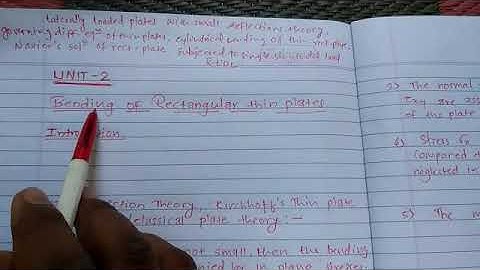 laterally loaded plates with small deflections theory,
governing diff. eqn of thin plates, cylindrical bending of thin rect plate,
Navier's soln of rect. plate subjected to loaded load
UNIT-2
Bending of Rectangular thin plates
Introduction
Theory, Kirchhoff's thin plate
classical plate theory :-
not small, then the bending
in plane
2) The normal
are
of the plate
6) Stress
compared
neglected
5) The